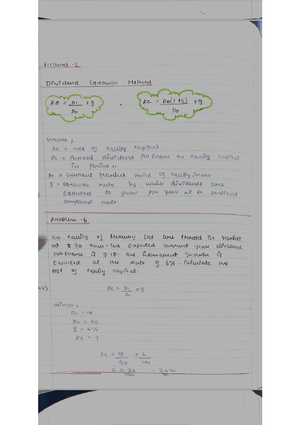 Method -2
Dividend Growth Method
Ke = D1/P0 + g , Ke = D0(1+g)/P0 + g
where,
Ke = cost of equity capital
D1 = current dividend per share on equity capital
in period 1
P0 = current market price of equity share
g = growth rate by which dividends are
expected to grow per year at a constant
compound rate
Problem -6
The equity of Mercury Ltd are traded in market
at ₹ 90 each. The expected current year dividend
per share is ₹ 18. The subsequent growth is
expected at the rate of 6%. Calculate the
cost of equity capital.
Ke = D1/P0 + g
where,
D1 = 18
P0 = 90
g = 6%
Ke = ?
Ke = 18/90 + 6/100